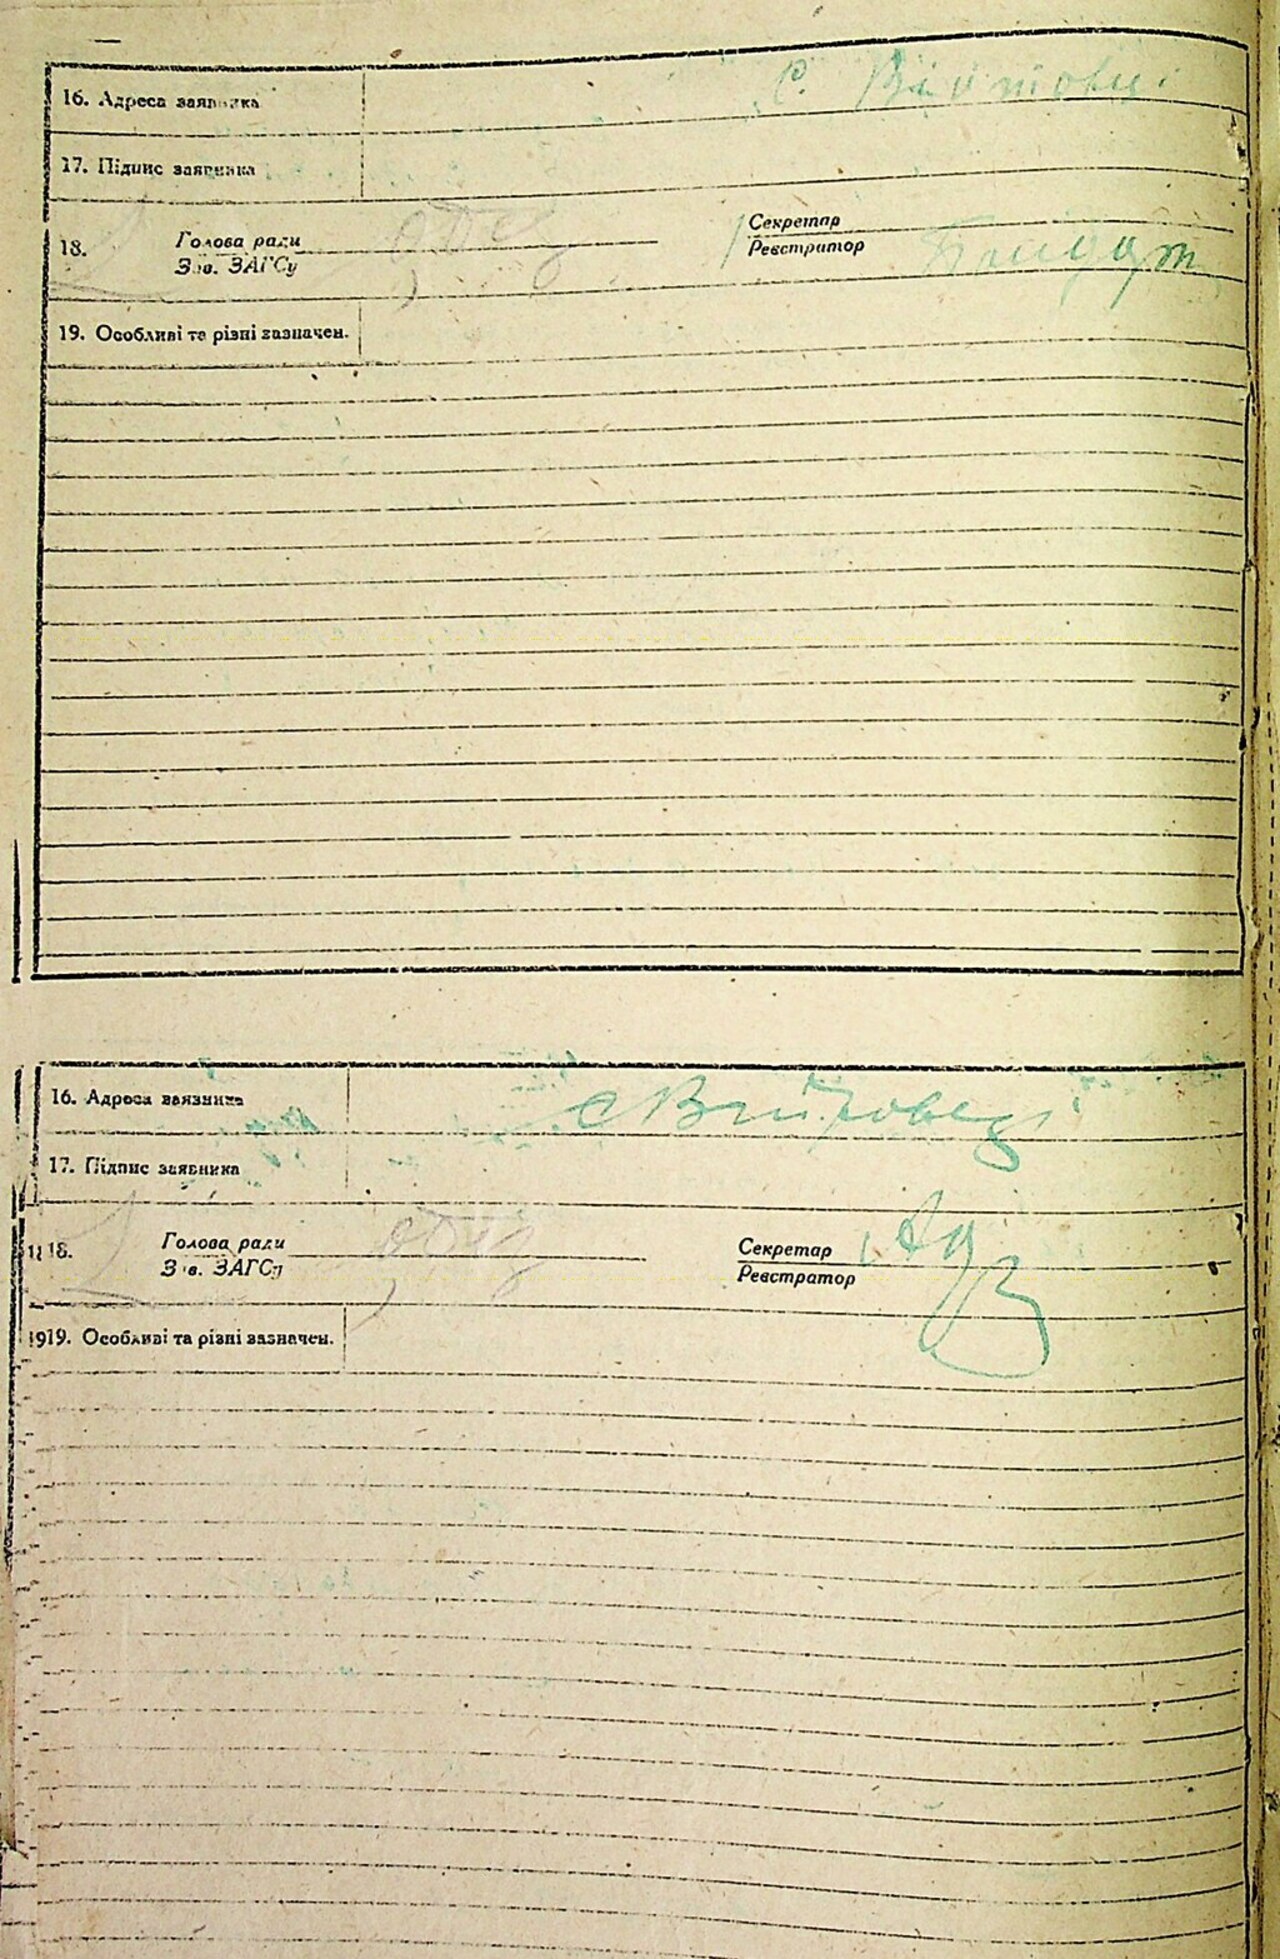 16. Адреса заявника С. Війтовці
17. Підпис заявника
18. Голова ради Секретар
Зав. ЗАГСу Реєстратор
19. Особливі та різні зазначен.
16. Адреса заявника с Війтовці
17. Підпис заявника
18. Голова ради Секретар
Зав. ЗАГСу Реєстратор
1919. Особливі та різні зазначен.